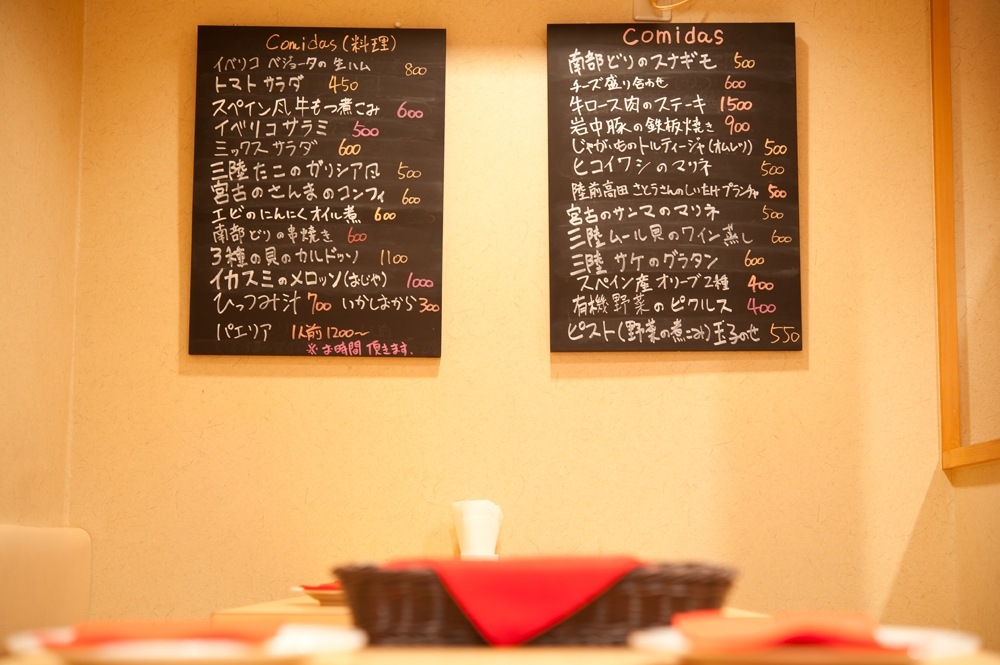 Comidas (料理)
イベリコ ベジョータの 生ハム 800
トマト サラダ 450
スペイン風 牛もつ煮こみ 600
イベリコ サラミ 500
ミックス サラダ 600
三陸 たこの ガリシア風 500
宮古のさんまのコンフィ 600
エビのにんにくオイル煮 600
南部どりの串焼き 600
3種の貝のカルドッソ 1100
イカスミのメロッソ(おじや) 1000
ひっつみ汁 700 いかしおから 300
パエリア 1人前 1200〜
※お時間 頂きます.
Comidas
南部どりのスナギモ 500
チーズ盛り合わせ 600
牛ロース肉のステーキ 1500
岩中豚の鉄板焼き 900
じゃがいものトルティージャ(オムレツ) 500
ヒコイワシのマリネ 500
陸前高田 さとうさんのしいたけプランチャ 500
宮古のサンマのマリネ 500
三陸ムール貝のワイン蒸し 600
三陸 サケのグラタン 600
スペイン産 オリーブ2種 400
有機野菜のピクルス 400
ピスト(野菜の煮こみ)玉子のせ 550